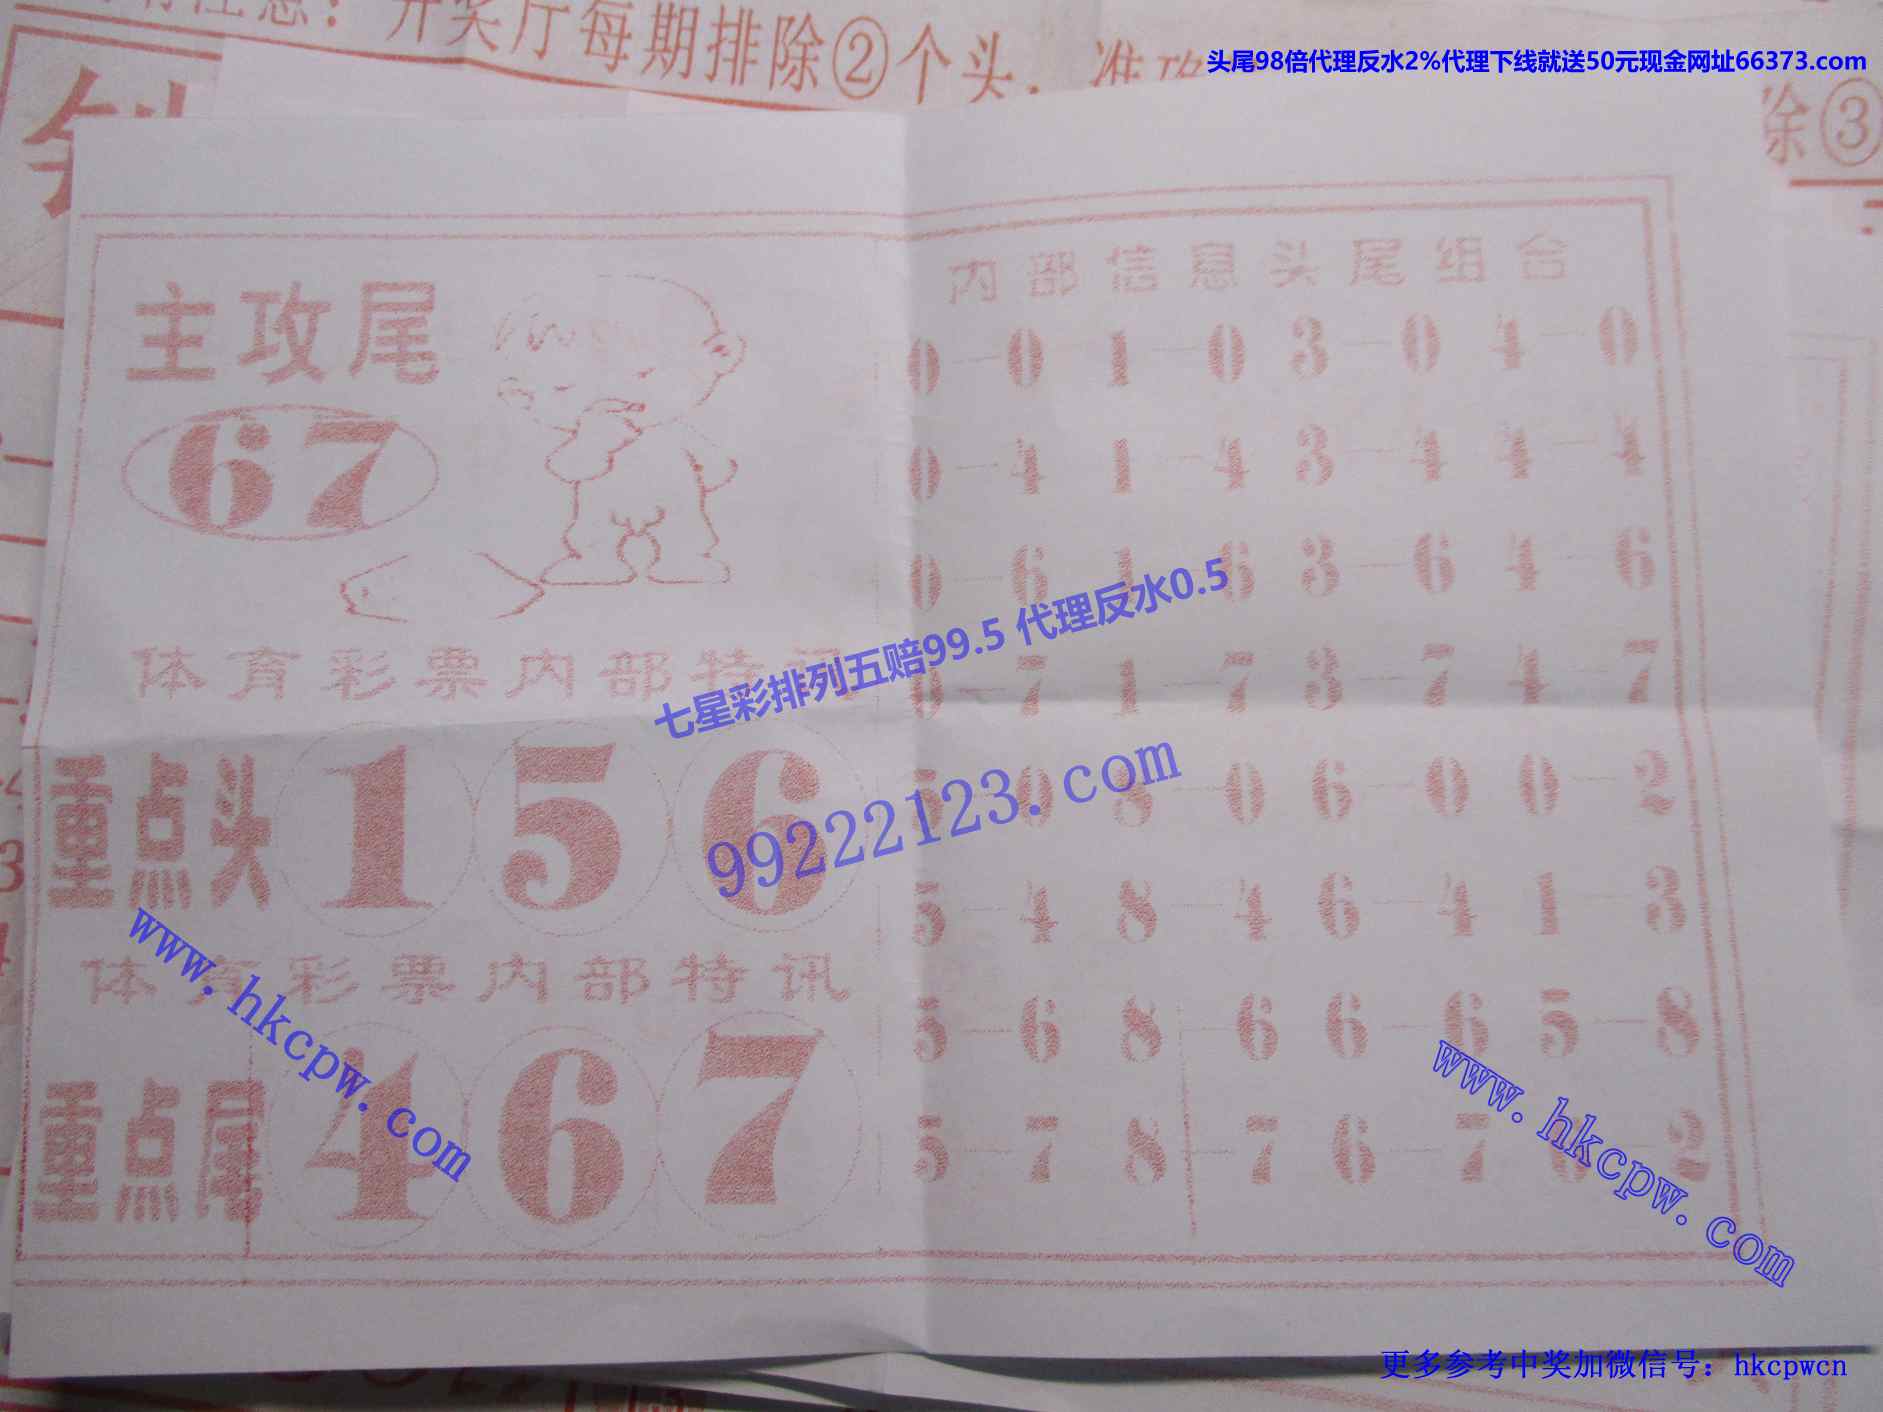 注意：开奖厅每期排除②个头．准攻
头尾98倍代理反水2%代理下线就送50元现金网址66373.com
除③
主攻尾
67
体育彩票内部特讯
重点头 1 5 6
体育彩票内部特讯
重点尾 4 6 7
内部信息头尾组合
0—0 1—0 3—0 4—0
0—4 1—4 3—4 4—4
0—6 1—6 3—6 4—6
0—7 1—7 3—7 4—7
5—0 8—0 6—0 0—2
5—4 8—4 6—4 1—3
5—6 8—6 6—6 5—8
5—7 8—7 6—7 6—2
七星彩排列五赔99.5 代理反水0.5
99222123.com
www.hkcpw.com
www.hkcpw.com
更多参考中奖加微信号：hkcpwcn